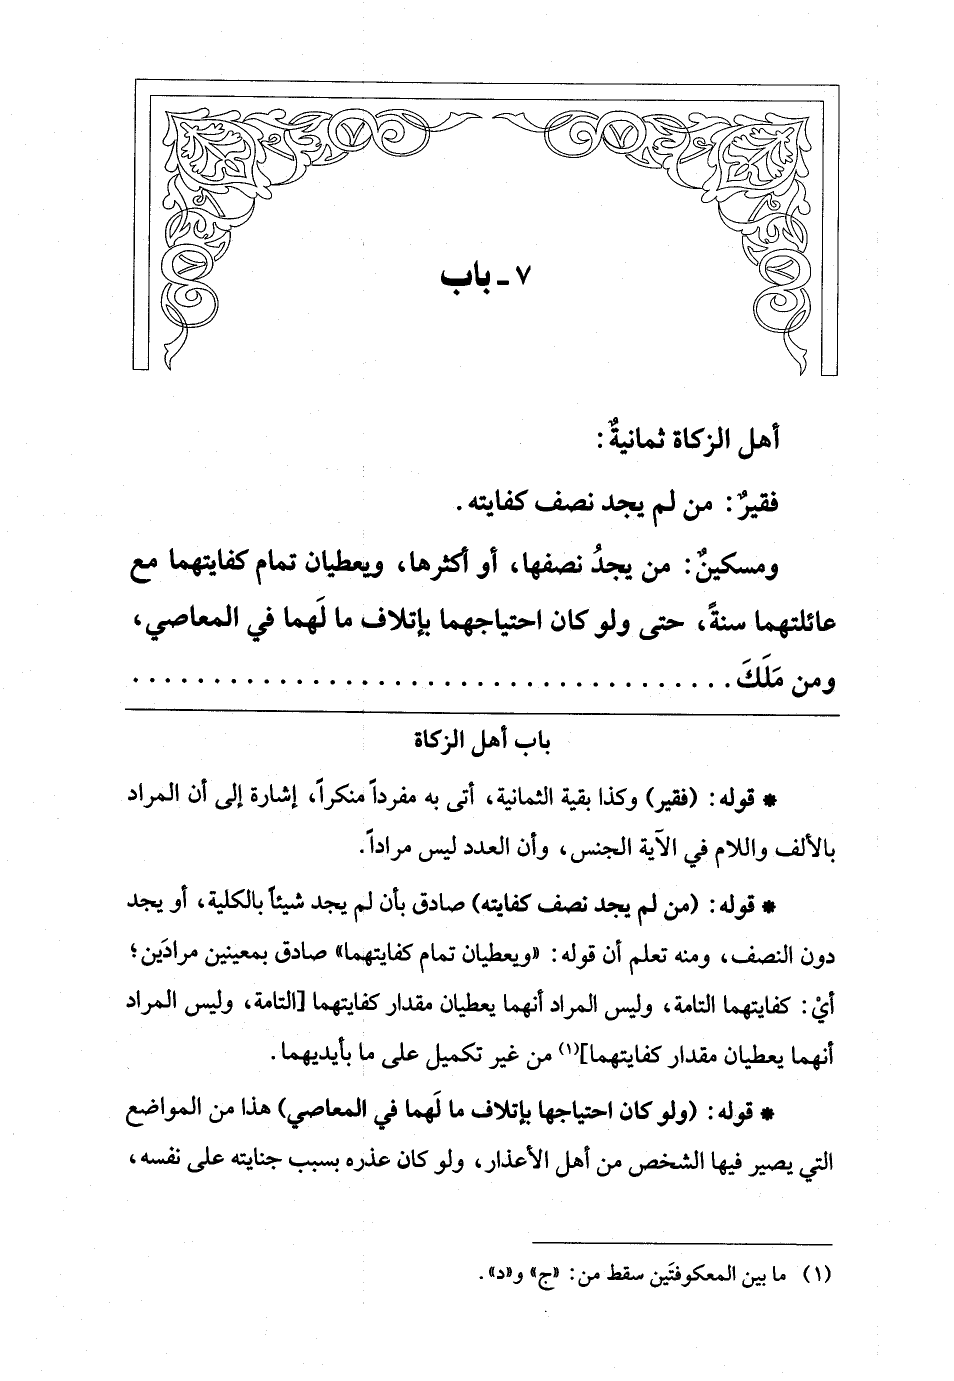 ٧ - باب
أهل الزكاة ثمانيةٌ:
فقيرٌ: من لم يجد نصف كفايته.
ومسكينٌ: من يجدُ نصفها، أو أكثرها، ويعطيان تمام كفايتهما مع
عائلتهما سنةً، حتى ولو كان احتياجهما بإتلاف ما لَهما في المعاصي،
ومن مَلَكَ......................................
باب أهل الزكاة
* قوله: (فقير) وكذا بقية الثمانية، أتى به مفرداً منكراً، إشارة إلى أن المراد
بالألف واللام في الآية الجنس، وأن العدد ليس مراداً.
* قوله: (من لم يجد نصف كفايته) صادق بأن لم يجد شيئاً بالكلية، أو يجد
دون النصف، ومنه تعلم أن قوله: «ويعطيان تمام كفايتهما» صادق بمعينين مرادَين؛
أيْ: كفايتهما التامة، وليس المراد أنهما يعطيان مقدار كفايتهما [التامة، وليس المراد
أنهما يعطيان مقدار كفايتهما](١) من غير تكميل على ما بأيديهما.
* قوله: (ولو كان احتياجها بإتلاف ما لَهما في المعاصي) هذا من المواضع
التي يصير فيها الشخص من أهل الأعذار، ولو كان عذره بسبب جنايته على نفسه،
(١) ما بين المعكوفتَين سقط من: «ج» و«د».